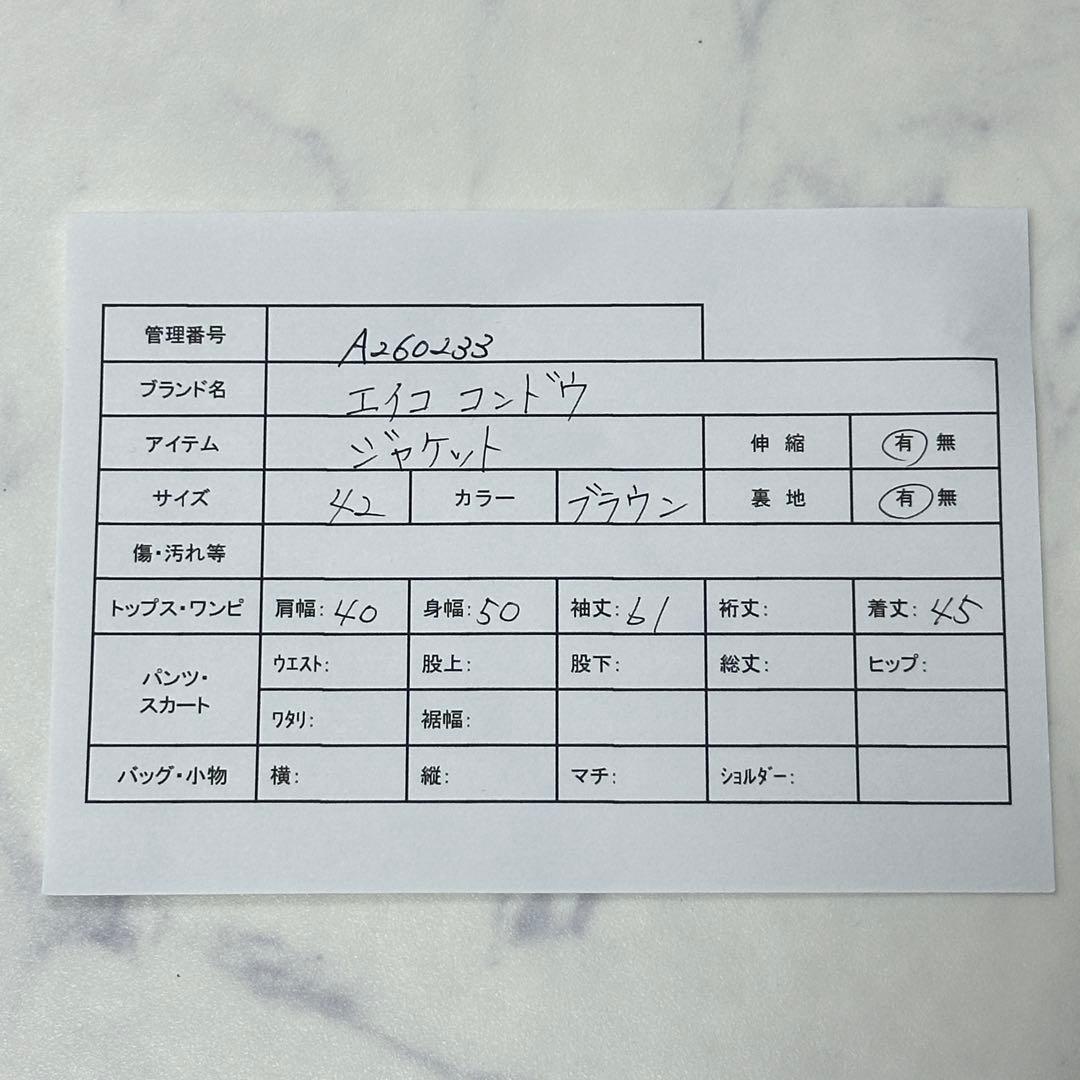 管理番号 A260233
ブランド名 エイココンドウ
アイテム ジャケット 伸縮 有 無
サイズ 42 カラー ブラウン 裏地 有 無
傷・汚れ等
トップス・ワンピ 肩幅: 40 身幅: 50 袖丈: 61 裄丈: 着丈: 45
パンツ・スカート ウエスト: 股上: 股下: 総丈: ヒップ:
ワタリ: 裾幅:
バッグ・小物 横: 縦: マチ: ショルダー: